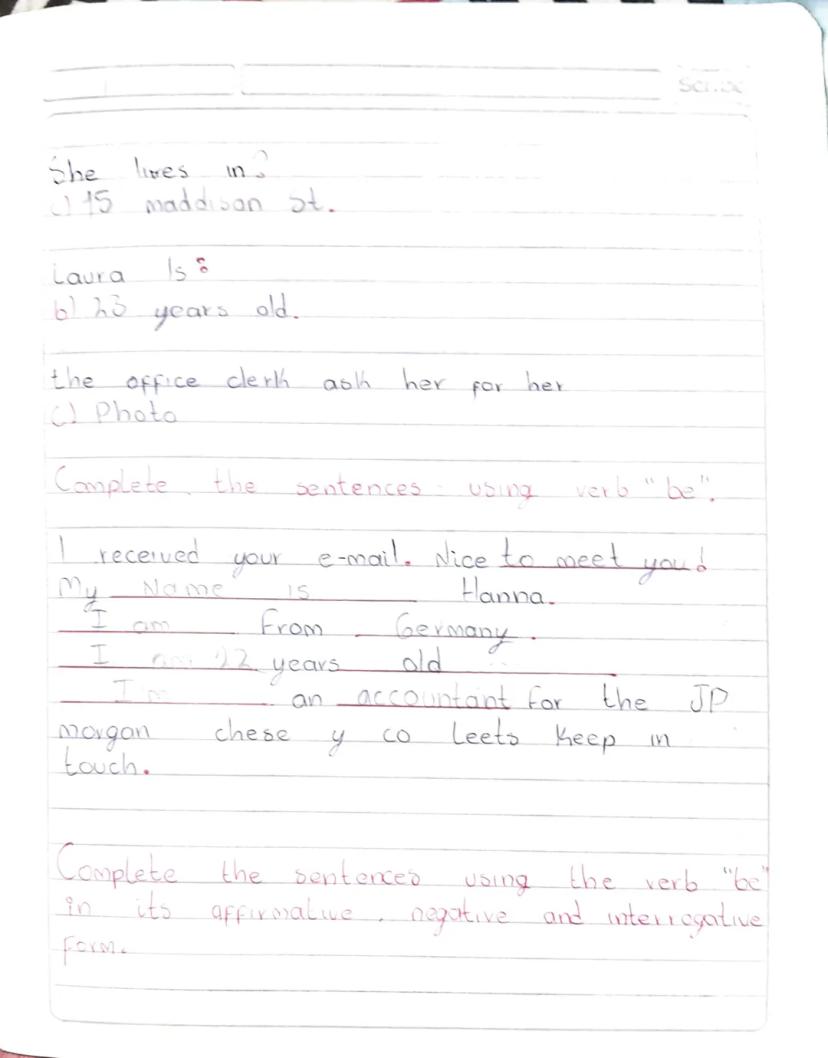 Scribe
She lives in?
c) 15 maddison st.
Laura Is:
b) 23 years old.
the office clerk ask her for her
c) Photo
Complete the sentences using verb "be".
I received your e-mail. Nice to meet you!
My Name is Hanna.
I am From Germany.
I am 22 years old
I'm an accountant for the JP
morgan chese y co leets keep in
touch.
Complete the sentences using the verb "be"
in its affirmative, negative and interrogative
form.